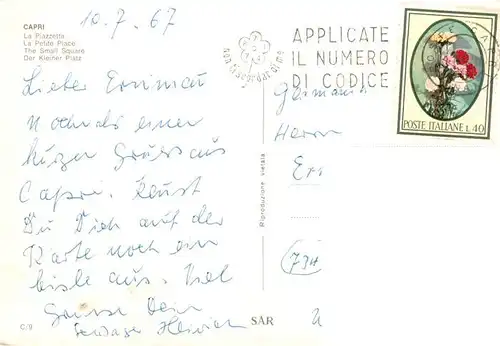 CAPRI
La Piazzetta
La Petite Place
The Small Square
Der Kleiner Platz
10.7.67
Lieber
Nochmals einen
kurzen Gruss aus
Capri. Kennst
Du Dich auf der
Karte noch ein
bissle aus. Viel
Grüsse Dein
C/9
SAR
Riproduzione vietata
Non scordar di me
APPLICATE
IL NUMERO
DI CODICE
POSTE ITALIANE L. 40
Germania
Herrn
Er